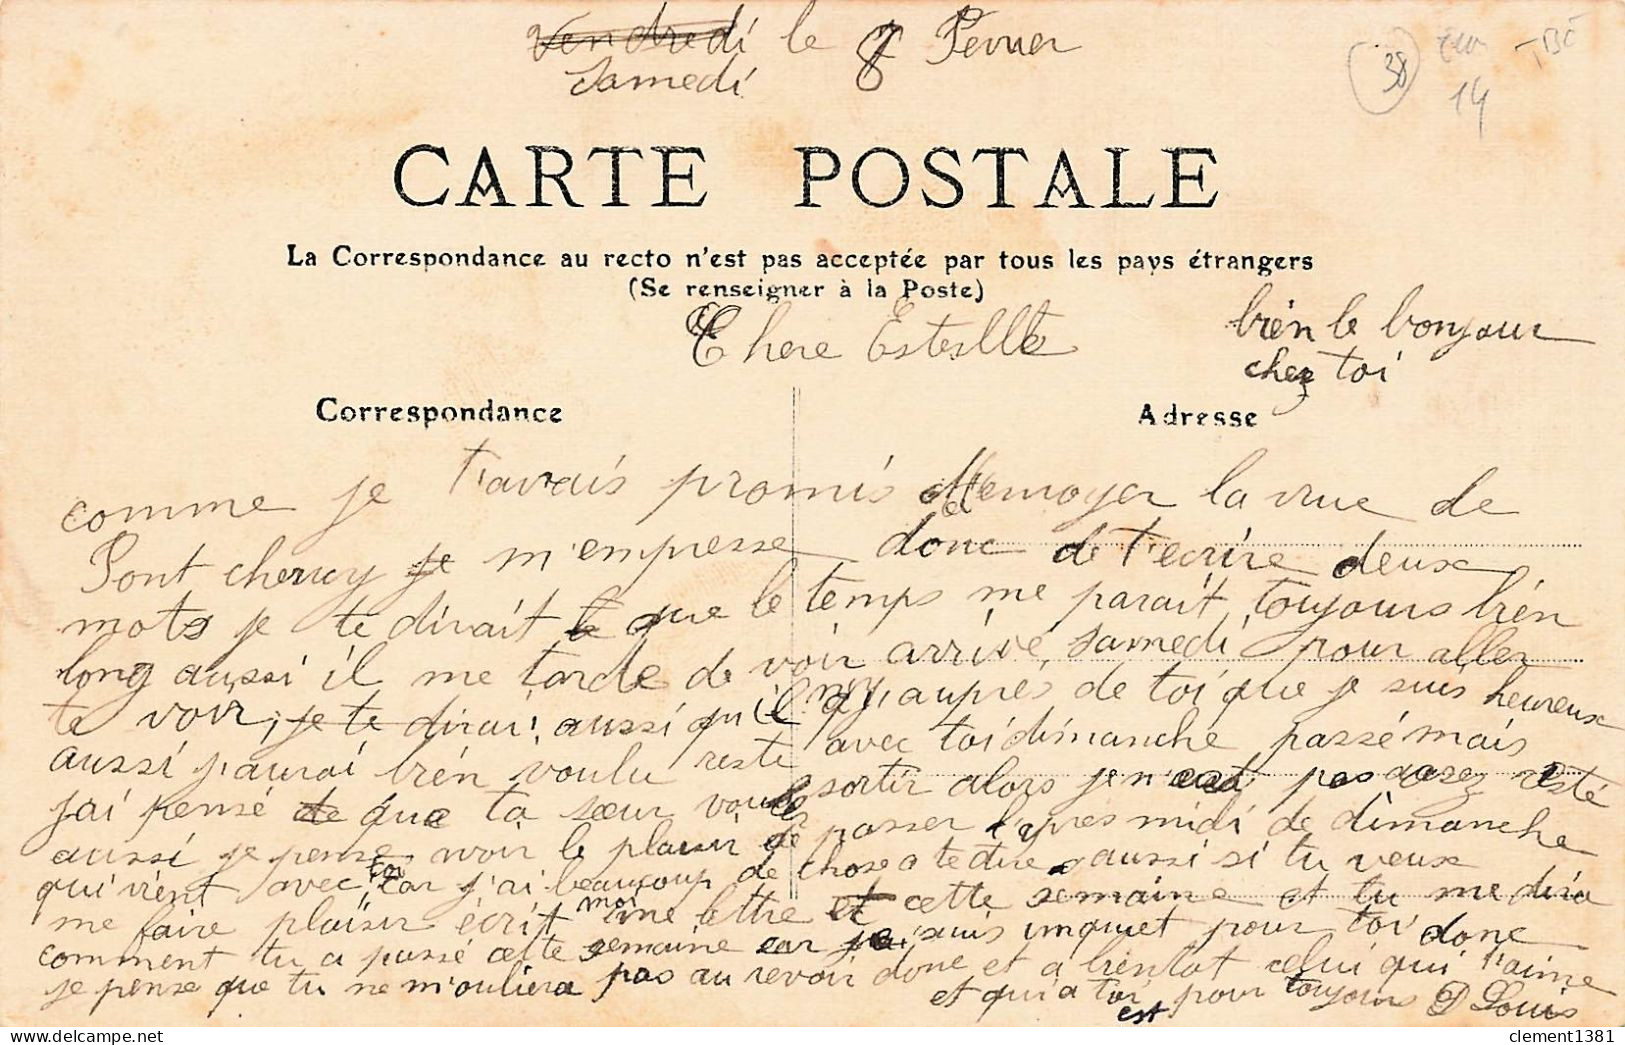 Vendredi le 8 Février
Samedi
38
14
TBE
CARTE POSTALE
La Correspondance au recto n'est pas acceptée par tous les pays étrangers
(Se renseigner à la Poste)
Chere Estelle
bien le bonjour
chez toi
Correspondance
Adresse
comme je t'avais promis de la vue de
Pont cherruy je m'empresse donc de t'ecrire deux
mots je te dirait que le temps me parait toujours bien
long aussi il me tarde de voir arrivé samedi pour aller
te voir, je te dirai aussi qu'il auprès de toi que je suis heureux
aussi j'aurai bien voulu resté avec toi dimanche passé mais
j'ai pensé que ta sœur sortir alors je n'est pas osez resté
aussi je pense avoir le plaisir de passer l'apres midi de dimanche
qui vient avec toi car j'ai beaucoup de chose a te dire aussi si tu veux
me faire plaisir écrit moi une lettre cette semaine et tu me dira
comment tu a passé cette semaine car je suis inquiet pour toi donc
je pense que tu ne m'ouliera pas au revoir donc et a bientot celui qui t'aime
et qui est a toi pour toujours Louis
clement1381